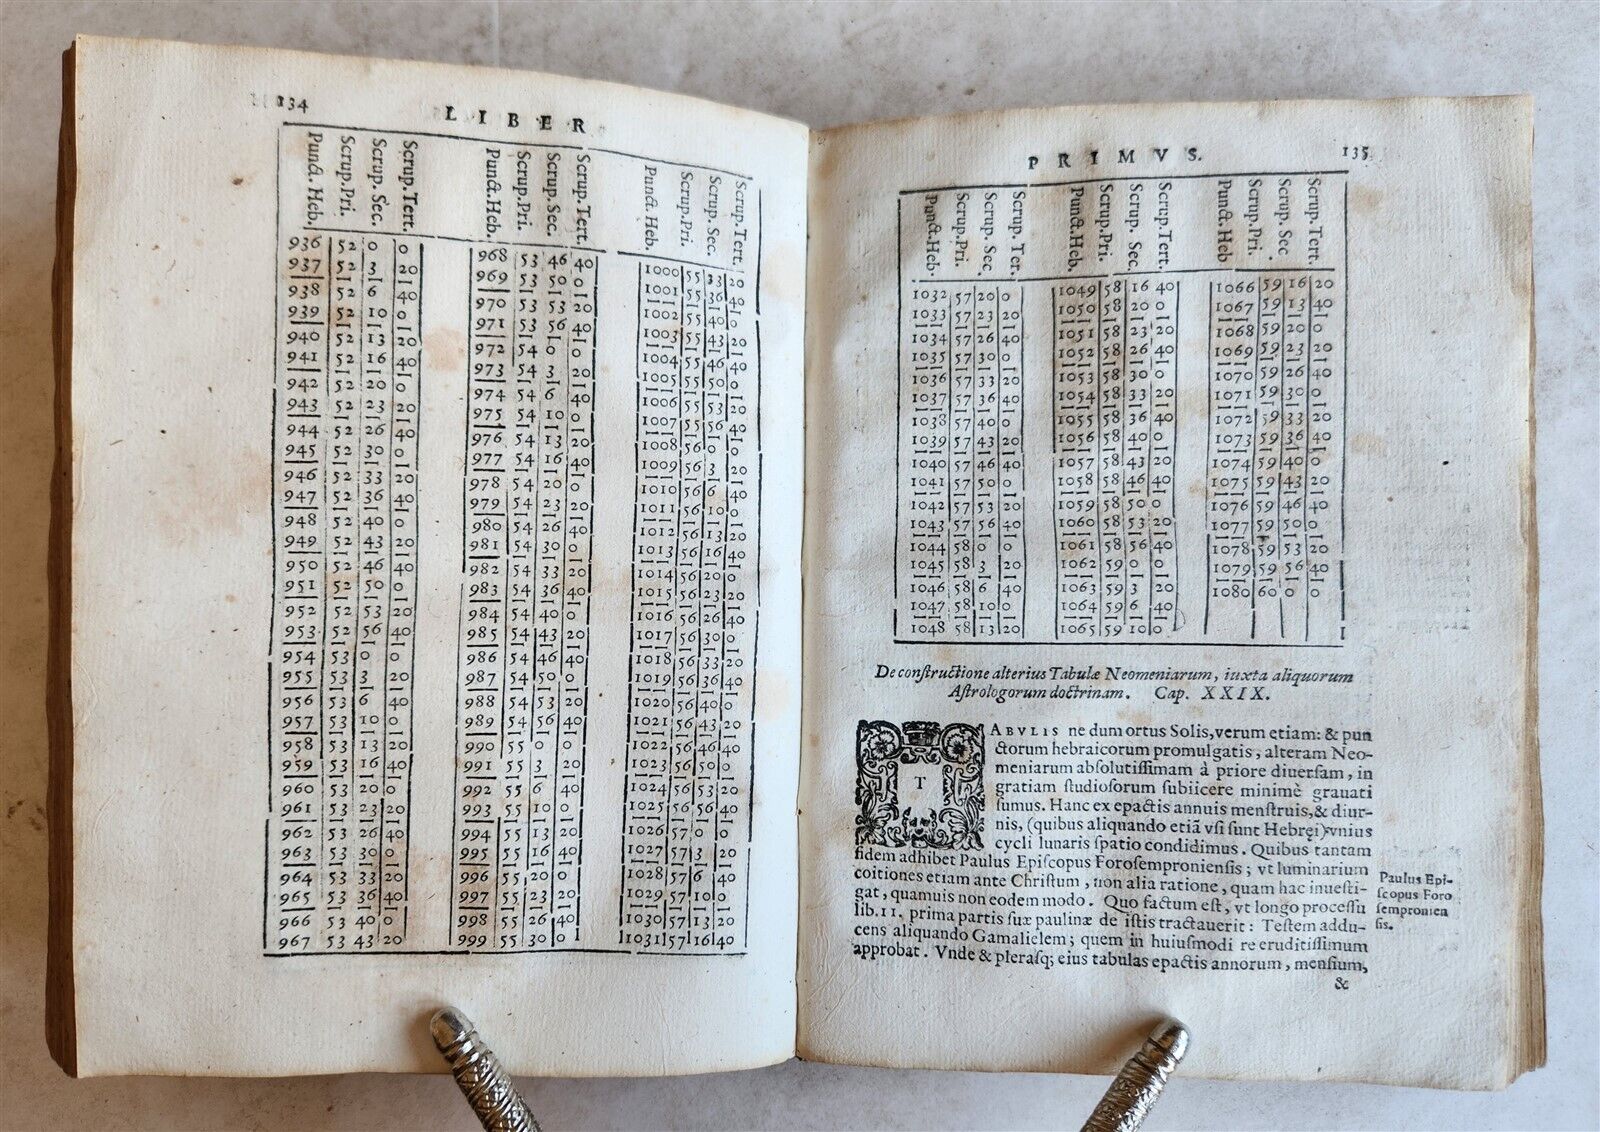 134
LIBER
Punct. Heb. Scrup.Pri. Scrup. Sec. Scrup. Tert.
936 52 0 0
937 52 3 20
938 52 6 40
939 52 10 0
940 52 13 20
941 52 16 40
942 52 20 0
943 52 23 20
944 52 26 40
945 52 30 0
946 52 33 20
947 52 36 40
948 52 40 0
949 52 43 20
950 52 46 40
951 52 50 0
952 52 53 20
953 52 56 40
954 53 0 0
955 53 3 20
956 53 6 40
957 53 10 0
958 53 13 20
959 53 16 40
960 53 20 0
961 53 23 20
962 53 26 40
963 53 30 0
964 53 33 20
965 53 36 40
966 53 40 0
967 53 43 20
Punct.Heb. Scrup.Pri. Scrup.Sec. Scrup.Tert.
968 53 46 40
969 53 50 0
970 53 53 20
971 53 56 40
972 54 0 0
973 54 3 20
974 54 6 40
975 54 10 0
976 54 13 20
977 54 16 40
978 54 20 0
979 54 23 20
980 54 26 40
981 54 30 0
982 54 33 20
983 54 36 40
984 54 40 0
985 54 43 20
986 54 46 40
987 54 50 0
988 54 53 20
989 54 56 40
990 55 0 0
991 55 3 20
992 55 6 40
993 55 10 0
994 55 13 20
995 55 16 40
996 55 20 0
997 55 23 20
998 55 26 40
999 55 30 0
Punct. Heb. Scrup.Pri. Scrup.Sec. Scrup. Tert.
1000 55 33 20
1001 55 36 40
1002 55 40 0
1003 55 43 20
1004 55 46 40
1005 55 50 0
1006 55 53 20
1007 55 56 40
1008 56 0 0
1009 56 3 20
1010 56 6 40
1011 56 10 0
1012 56 13 20
1013 56 16 40
1014 56 20 0
1015 56 23 20
1016 56 26 40
1017 56 30 0
1018 56 33 20
1019 56 36 40
1020 56 40 0
1021 56 43 20
1022 56 46 40
1023 56 50 0
1024 56 53 20
1025 56 56 40
1026 57 0 0
1027 57 3 20
1028 57 6 40
1029 57 10 0
1030 57 13 20
1031 57 16 40
PRIMVS.
135
Punct.Heb. Scrup.Pri. Scrup. Sec. Scrup. Ter.
1032 57 20 0
1033 57 23 20
1034 57 26 40
1035 57 30 0
1036 57 33 20
1037 57 36 40
1038 57 40 0
1039 57 43 20
1040 57 46 40
1041 57 50 0
1042 57 53 20
1043 57 56 40
1044 58 0 0
1045 58 3 20
1046 58 6 40
1047 58 10 0
1048 58 13 20
Punct.Heb. Scrup.Pri. Scrup. Sec. Scrup.Tert.
1049 58 16 40
1050 58 20 0
1051 58 23 20
1052 58 26 40
1053 58 30 0
1054 58 33 20
1055 58 36 40
1056 58 40 0
1057 58 43 20
1058 58 46 40
1059 58 50 0
1060 58 53 20
1061 58 56 40
1062 59 0 0
1063 59 3 20
1064 59 6 40
1065 59 10 0
Punct. Heb Scrup.Pri. Scrup. Sec Scrup.Tert.
1066 59 16 20
1067 59 13 40
1068 59 20 0
1069 59 23 20
1070 59 26 40
1071 59 30 0
1072 59 33 20
1073 59 36 40
1074 59 40 0
1075 59 43 20
1076 59 46 40
1077 59 50 0
1078 59 53 20
1079 59 56 40
1080 60 0 0
De constructione alterius Tabulæ Neomeniarum, iuxta aliquorum
Astrologorum doctrinam. Cap. XXIX.
TABVLIS ne dum ortus Solis, verum etiam: & pun
ctorum hebraicorum promulgatis, alteram Neo-
meniarum absolutissimam à priore diuersam, in
gratiam studiosorum subiicere minimè grauati
sumus. Hanc ex epactis annuis menstruis, & diur-
nis, (quibus aliquando etiã vsi sunt Hebręi) vnius
cycli lunaris spatio condidimus. Quibus tantam
fidem adhibet Paulus Episcopus Forosemproniensis; vt luminarium
coitiones etiam ante Christum, non alia ratione, quam hac inuesti-
gat, quamuis non eodem modo. Quo factum est, vt longo processu
lib. 11. prima partis suæ paulinæ de istis tractauerit: Testem addu-
cens aliquando Gamalielem; quem in huiusmodi re eruditissimum
approbat. Vnde & plerasq; eius tabulas epactis annorum, mensium,
&
Paulus Epi-
scopus Foro
sempronien
sis.